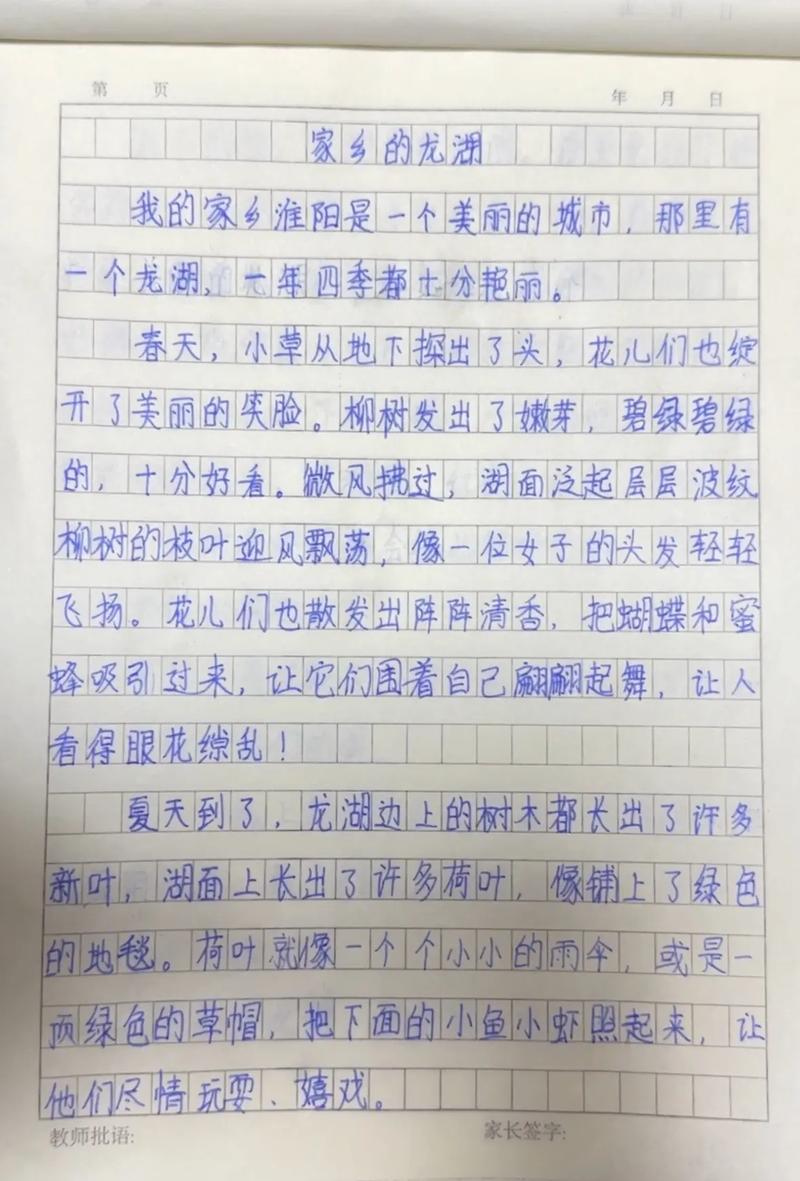 第 页 年 月 日
家乡的龙湖
我的家乡淮阳是一个美丽的城市，那里有
一个龙湖，一年四季都十分艳丽。
春天，小草从地下探出了头，花儿们也绽
开了美丽的笑脸。柳树发出了嫩芽，碧绿碧绿
的，十分好看。微风拂过，湖面泛起层层波纹
柳树的枝叶迎风飘荡，像一位女子的头发轻轻
飞扬。花儿们也散发出阵阵清香，把蝴蝶和蜜
蜂吸引过来，让它们围着自己翩翩起舞，让人
看得眼花缭乱！
夏天到了，龙湖边上的树木都长出了许多
新叶，湖面上长出了许多荷叶，像铺上了绿色
的地毯。荷叶就像一个个小小的雨伞，或是一
顶绿色的草帽，把下面的小鱼小虾照起来，让
他们尽情玩耍、嬉戏。
教师批语: 家长签字: